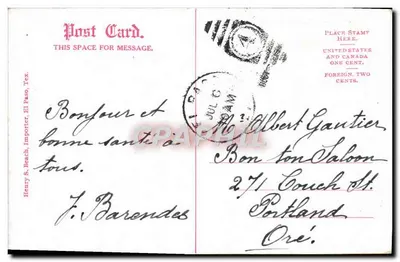 Post Card.
THIS SPACE FOR MESSAGE.
PLACE STAMP
HERE.
UNITED STATES
AND CANADA
ONE CENT.
FOREIGN, TWO
CENTS.
4
JUL 6
AM
Henry S. Beach, Importer, El Paso, Tex.
Bonjour et
bonne santé a
tous.
J. Barendes
M. Albert Gautier
Bon ton Saloon
271 Couch St.
Portland
Oré.